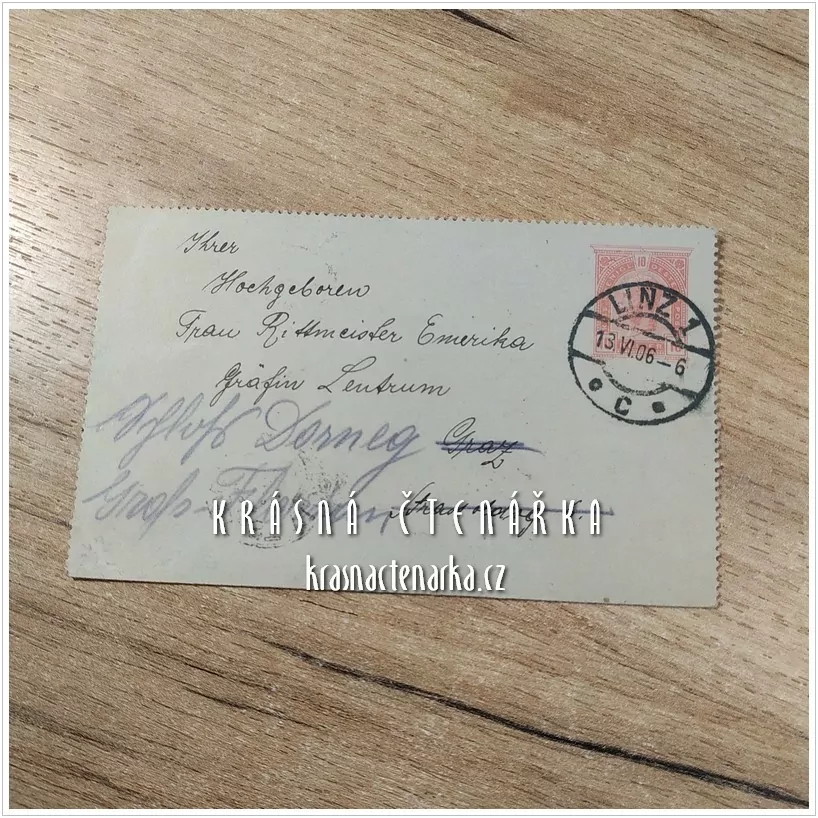 Ihrer
Hochgeboren
Frau Rittmeister Emerika
Gräfin Lentrum
Schloß Dorneg Graz
Groß-
KRÁSNÁ ČTENÁŘKA
krasnactenarka.cz
10
LINZ 1
13.VI.06-6
C